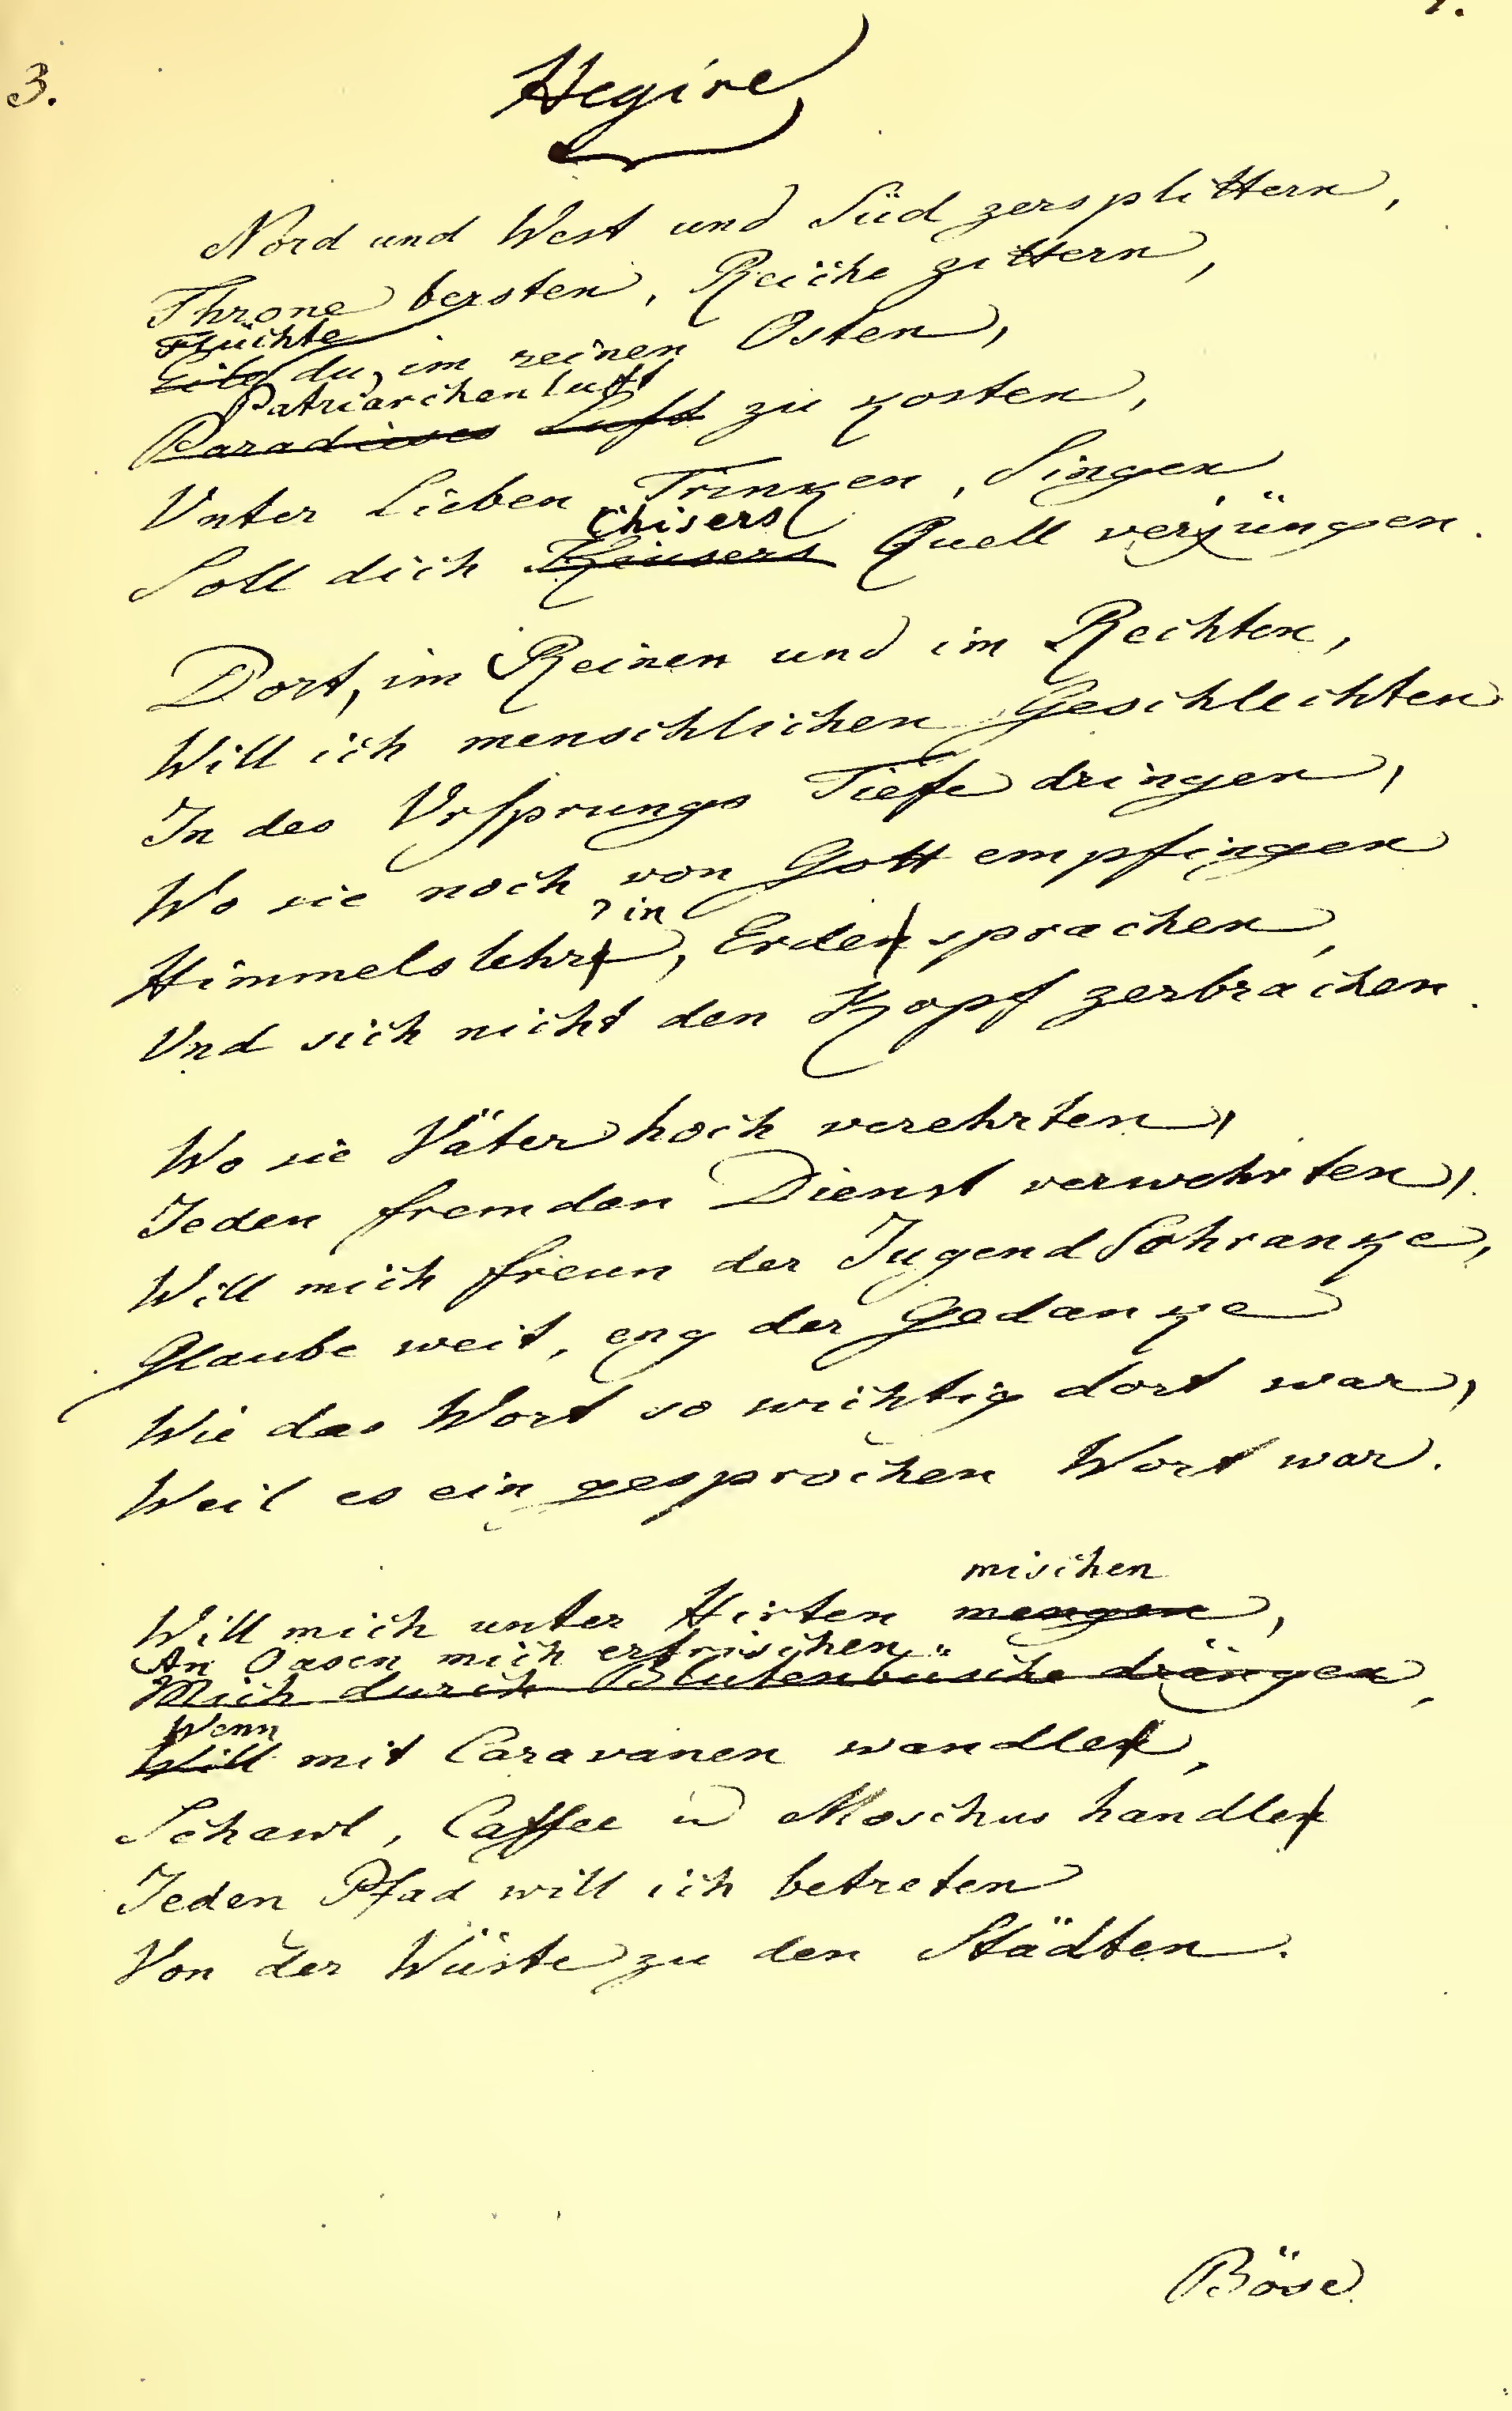 3.
Hegire
Nord und West und Süd zersplittern,
Throne bersten, Reiche zittern,
Flüchte
Eile du, im reinen Osten,
Patriarchenluft
Paradieses Luft zu kosten,
Unter Lieben Trinken, Singen
Chisers
Soll dich Quell verjüngen.
Dort, im Reinen und im Rechten,
Will ich menschlichen Geschlechten
In des Ursprungs Tiefe dringen,
Wo sie noch von Gott empfingen
in
Himmelslehr, Erdensprachen,
Und sich nicht den Kopf zerbrachen.
Wo sie Väter hoch verehrten,
Jeden fremden Dienst verwehrten,
Will mich freun der Jugend Schranke,
Glaube weit, eng der Gedanke
Wie das Wort so wichtig dort war,
Weil es ein gesprochen Wort war.
mischen
Will mich unter Hirten mengen,
An Oasen mich erfrischen
Mich durch Blütenbüsche drängen,
Wenn
Will mit Caravanen wandlen,
Schawl, Caffee u Moschus handlen
Jeden Pfad will ich betreten
Von der Wüste zu den Städten.
Böse